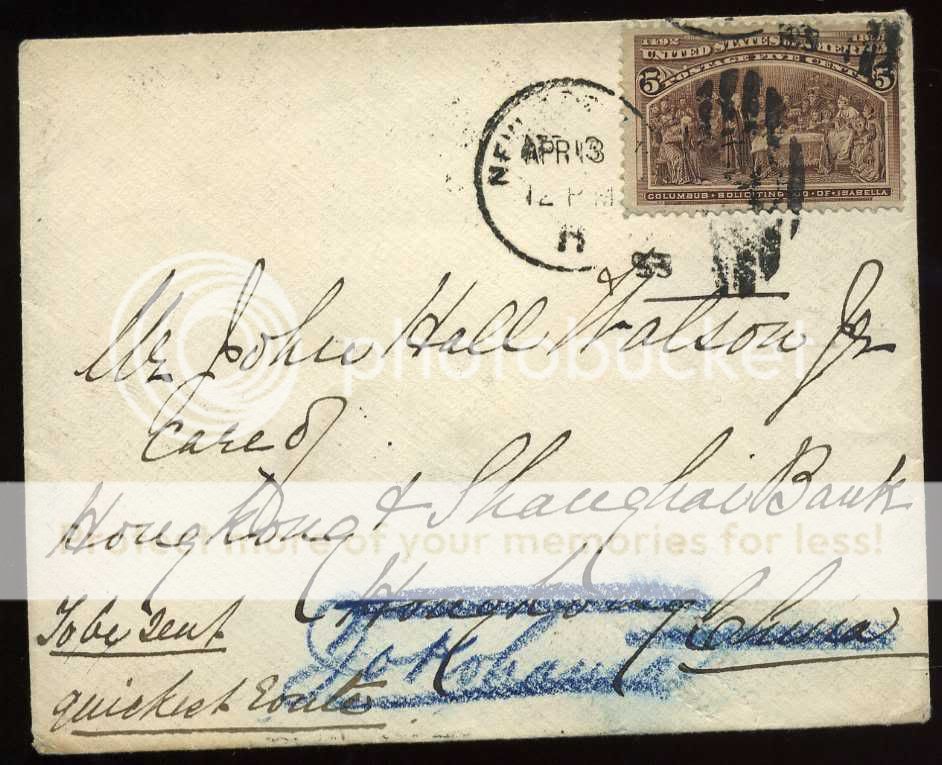 1492
UNITED STATES OF AMERICA
POSTAGE FIVE CENTS
5 5
COLUMBUS · SOLICITING AID · OF · ISABELLA
NEW
APR 13
12 P M
93
Mr John Hall Watson Jr
Care of
Hongkong & Shanghai Bank
Hongkong
China
To be sent
quickest route
Yokohama
photobucket
Protect more of your memories for less!